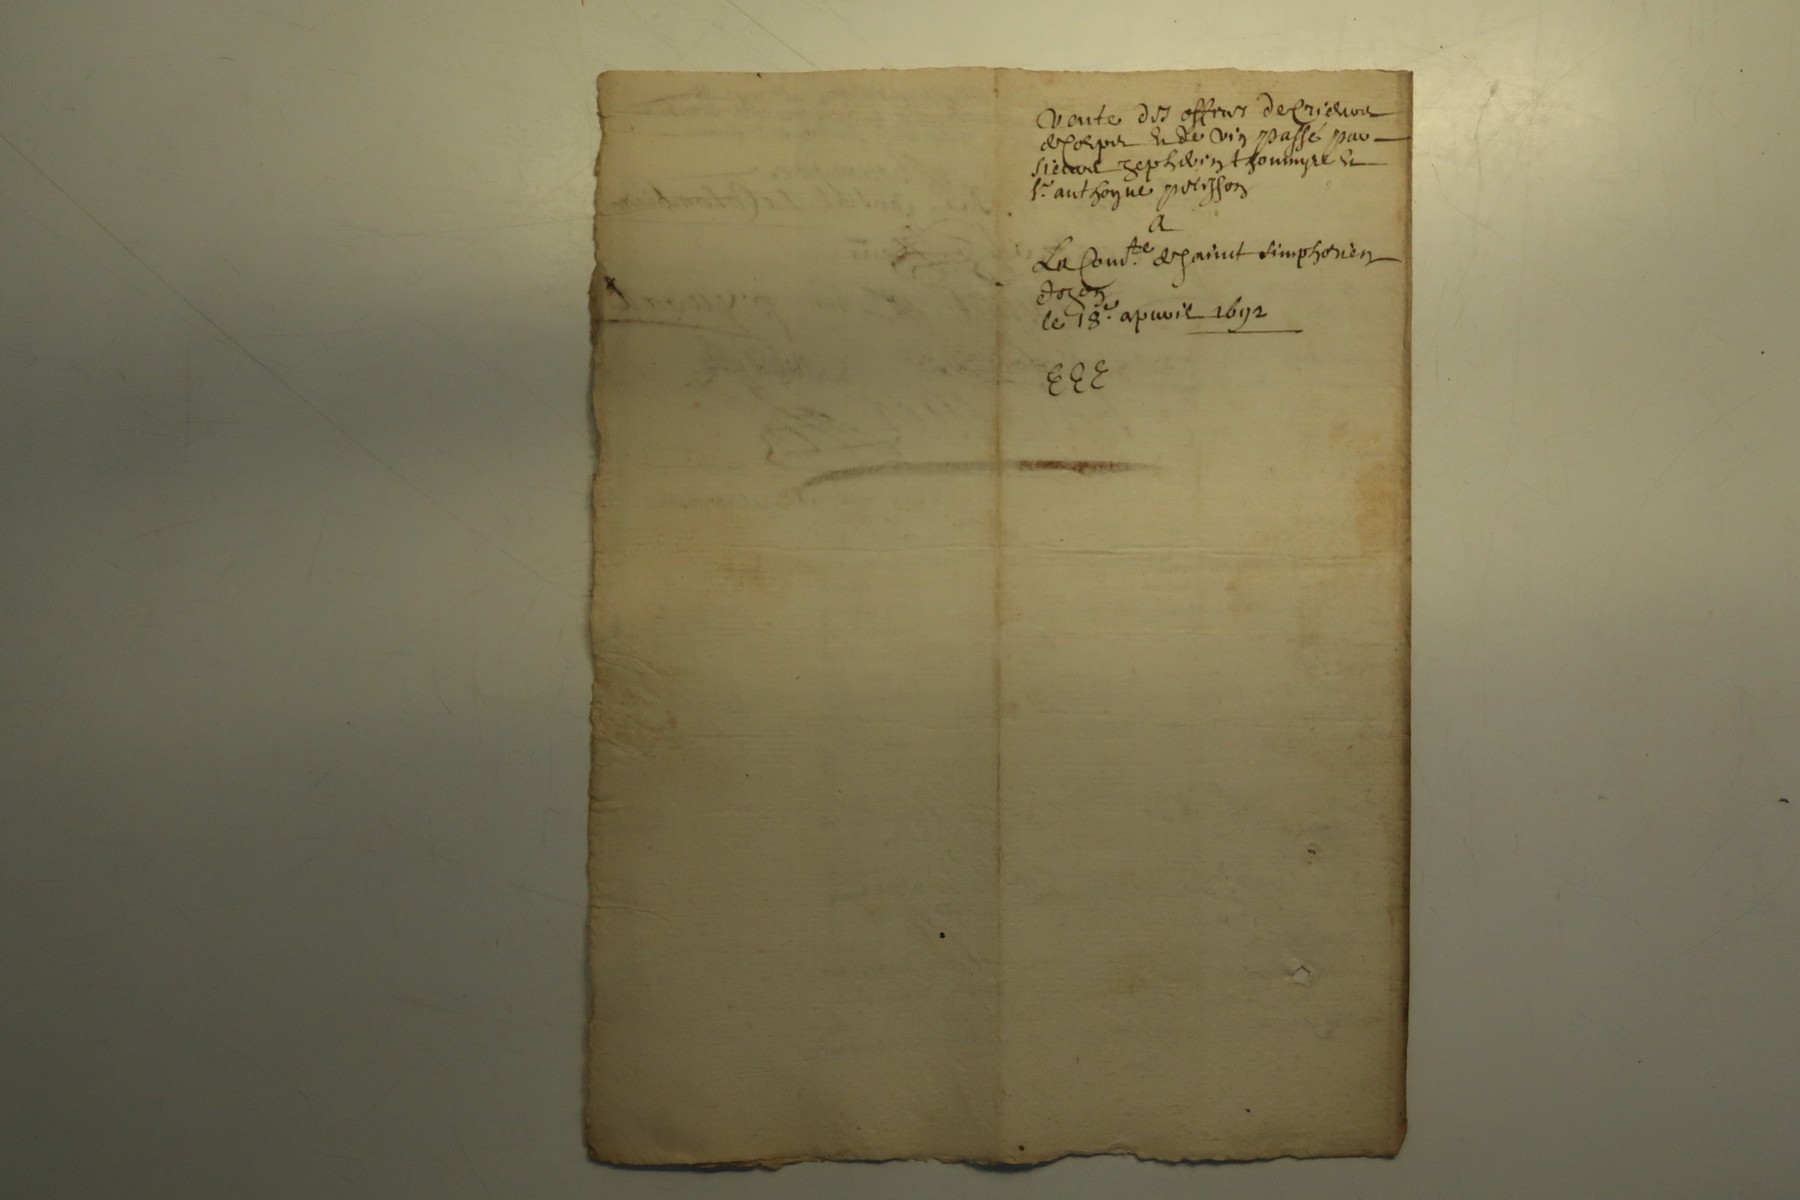 Vente des offices de Crieurs
de corps & de vin passé par
sieurs zephirin thoumyre &
Sr. anthoyne perisson
a
La Com.te de saint simphorien
dozon
le 18.e apvril 1692
EEE